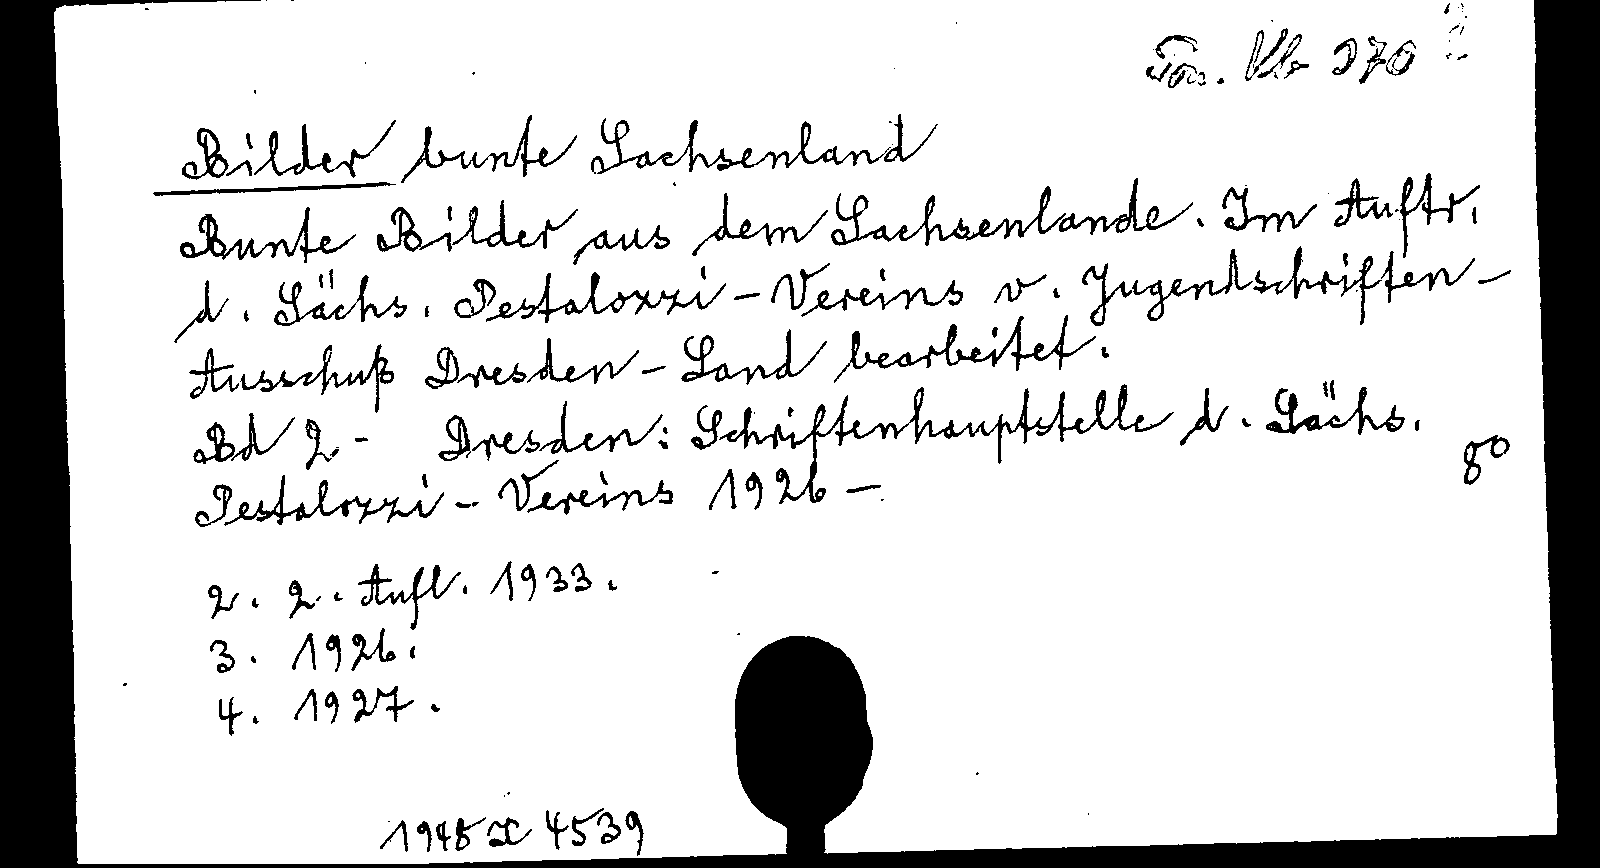 370
Bilder bunte Sachsenland
Bunte Bilder aus dem Sachsenlande. Im Auftr.
d. Sächs. Pestalozzi-Vereins v. Jugendschriften-
Ausschuß Dresden-Land bearbeitet.
Bd 2- Dresden: Schriftenhauptstelle d. Sächs.
Pestalozzi-Vereins 1926-
8°
2. 2. Aufl. 1933.
3. 1926.
4. 1927.
1948 4539